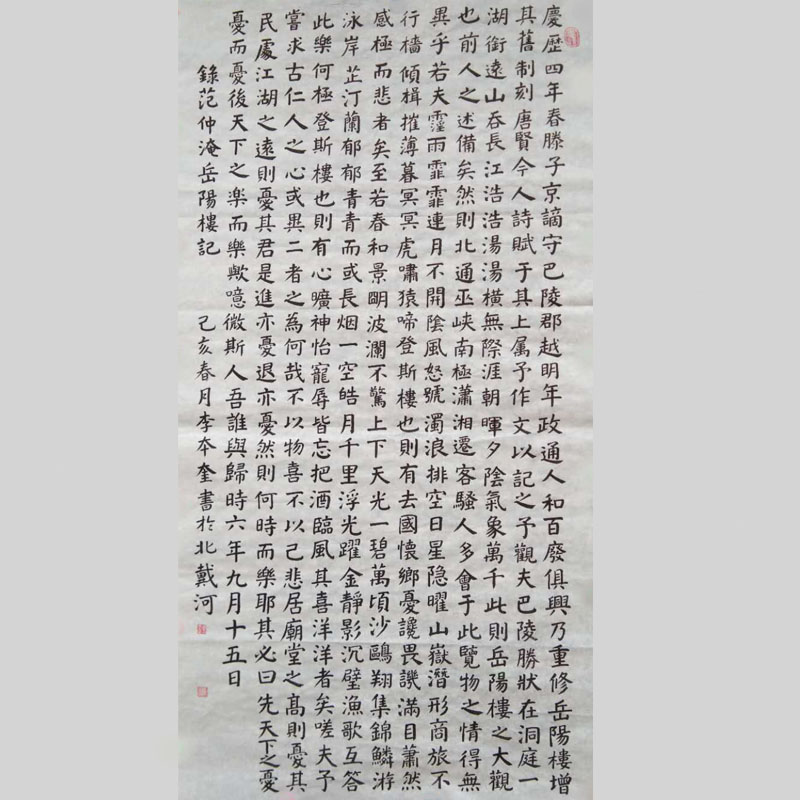 慶歷四年春滕子京謫守巴陵郡越明年政通人和百廢俱興乃重修岳陽樓增
其舊制刻唐賢今人詩賦于其上属予作文以記之予觀夫巴陵勝狀在洞庭一
湖銜遠山吞長江浩浩湯湯橫無際涯朝暉夕陰氣象萬千此則岳陽樓之大觀
也前人之述備矣然則北通巫峽南極瀟湘遷客騷人多會于此覽物之情得無
異乎若夫霪雨霏霏連月不開陰風怒號濁浪排空日星隐曜山嶽潛形商旅不
行檣傾楫摧薄暮冥冥虎嘯猿啼登斯樓也則有去國懷鄉憂讒畏譏滿目蕭然
感極而悲者矣至若春和景明波瀾不驚上下天光一碧萬頃沙鷗翔集錦鱗游
泳岸芷汀蘭郁郁青青而或長烟一空皓月千里浮光躍金靜影沉璧漁歌互答
此樂何極登斯樓也則有心曠神怡寵辱皆忘把酒臨風其喜洋洋者矣嗟夫予
嘗求古仁人之心或異二者之為何哉不以物喜不以己悲居廟堂之高則憂其
民處江湖之遠則憂其君是進亦憂退亦憂然則何時而樂耶其必曰先天下之憂
憂而憂後天下之楽而樂歟噫微斯人吾誰與歸時六年九月十五日
錄范仲淹岳陽樓記 己亥春月李本奎書於北戴河